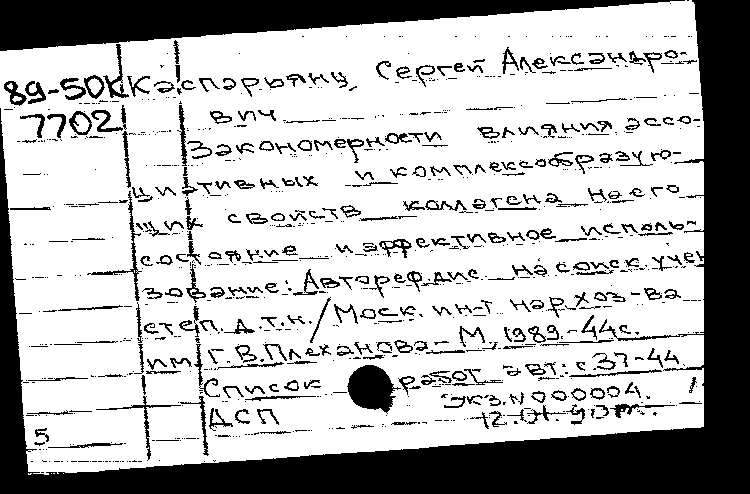 89-50К Каспарьянц, Сергей Александро-
7702 вич
Закономерности влияния ассо-
циативных и комплексообразую-
щих свойств коллагена на его
состояние и эффективное исполь-
зование: Автореф. дис. на соиск. учен
степ. д.т.н. / Моск. ин-т нар. хоз-ва
им. Г.В. Плеханова.- М., 1989.-44с.
Список работ авт.: с.37-44
Экз. N 000004.
ДСП 12.01.90
5